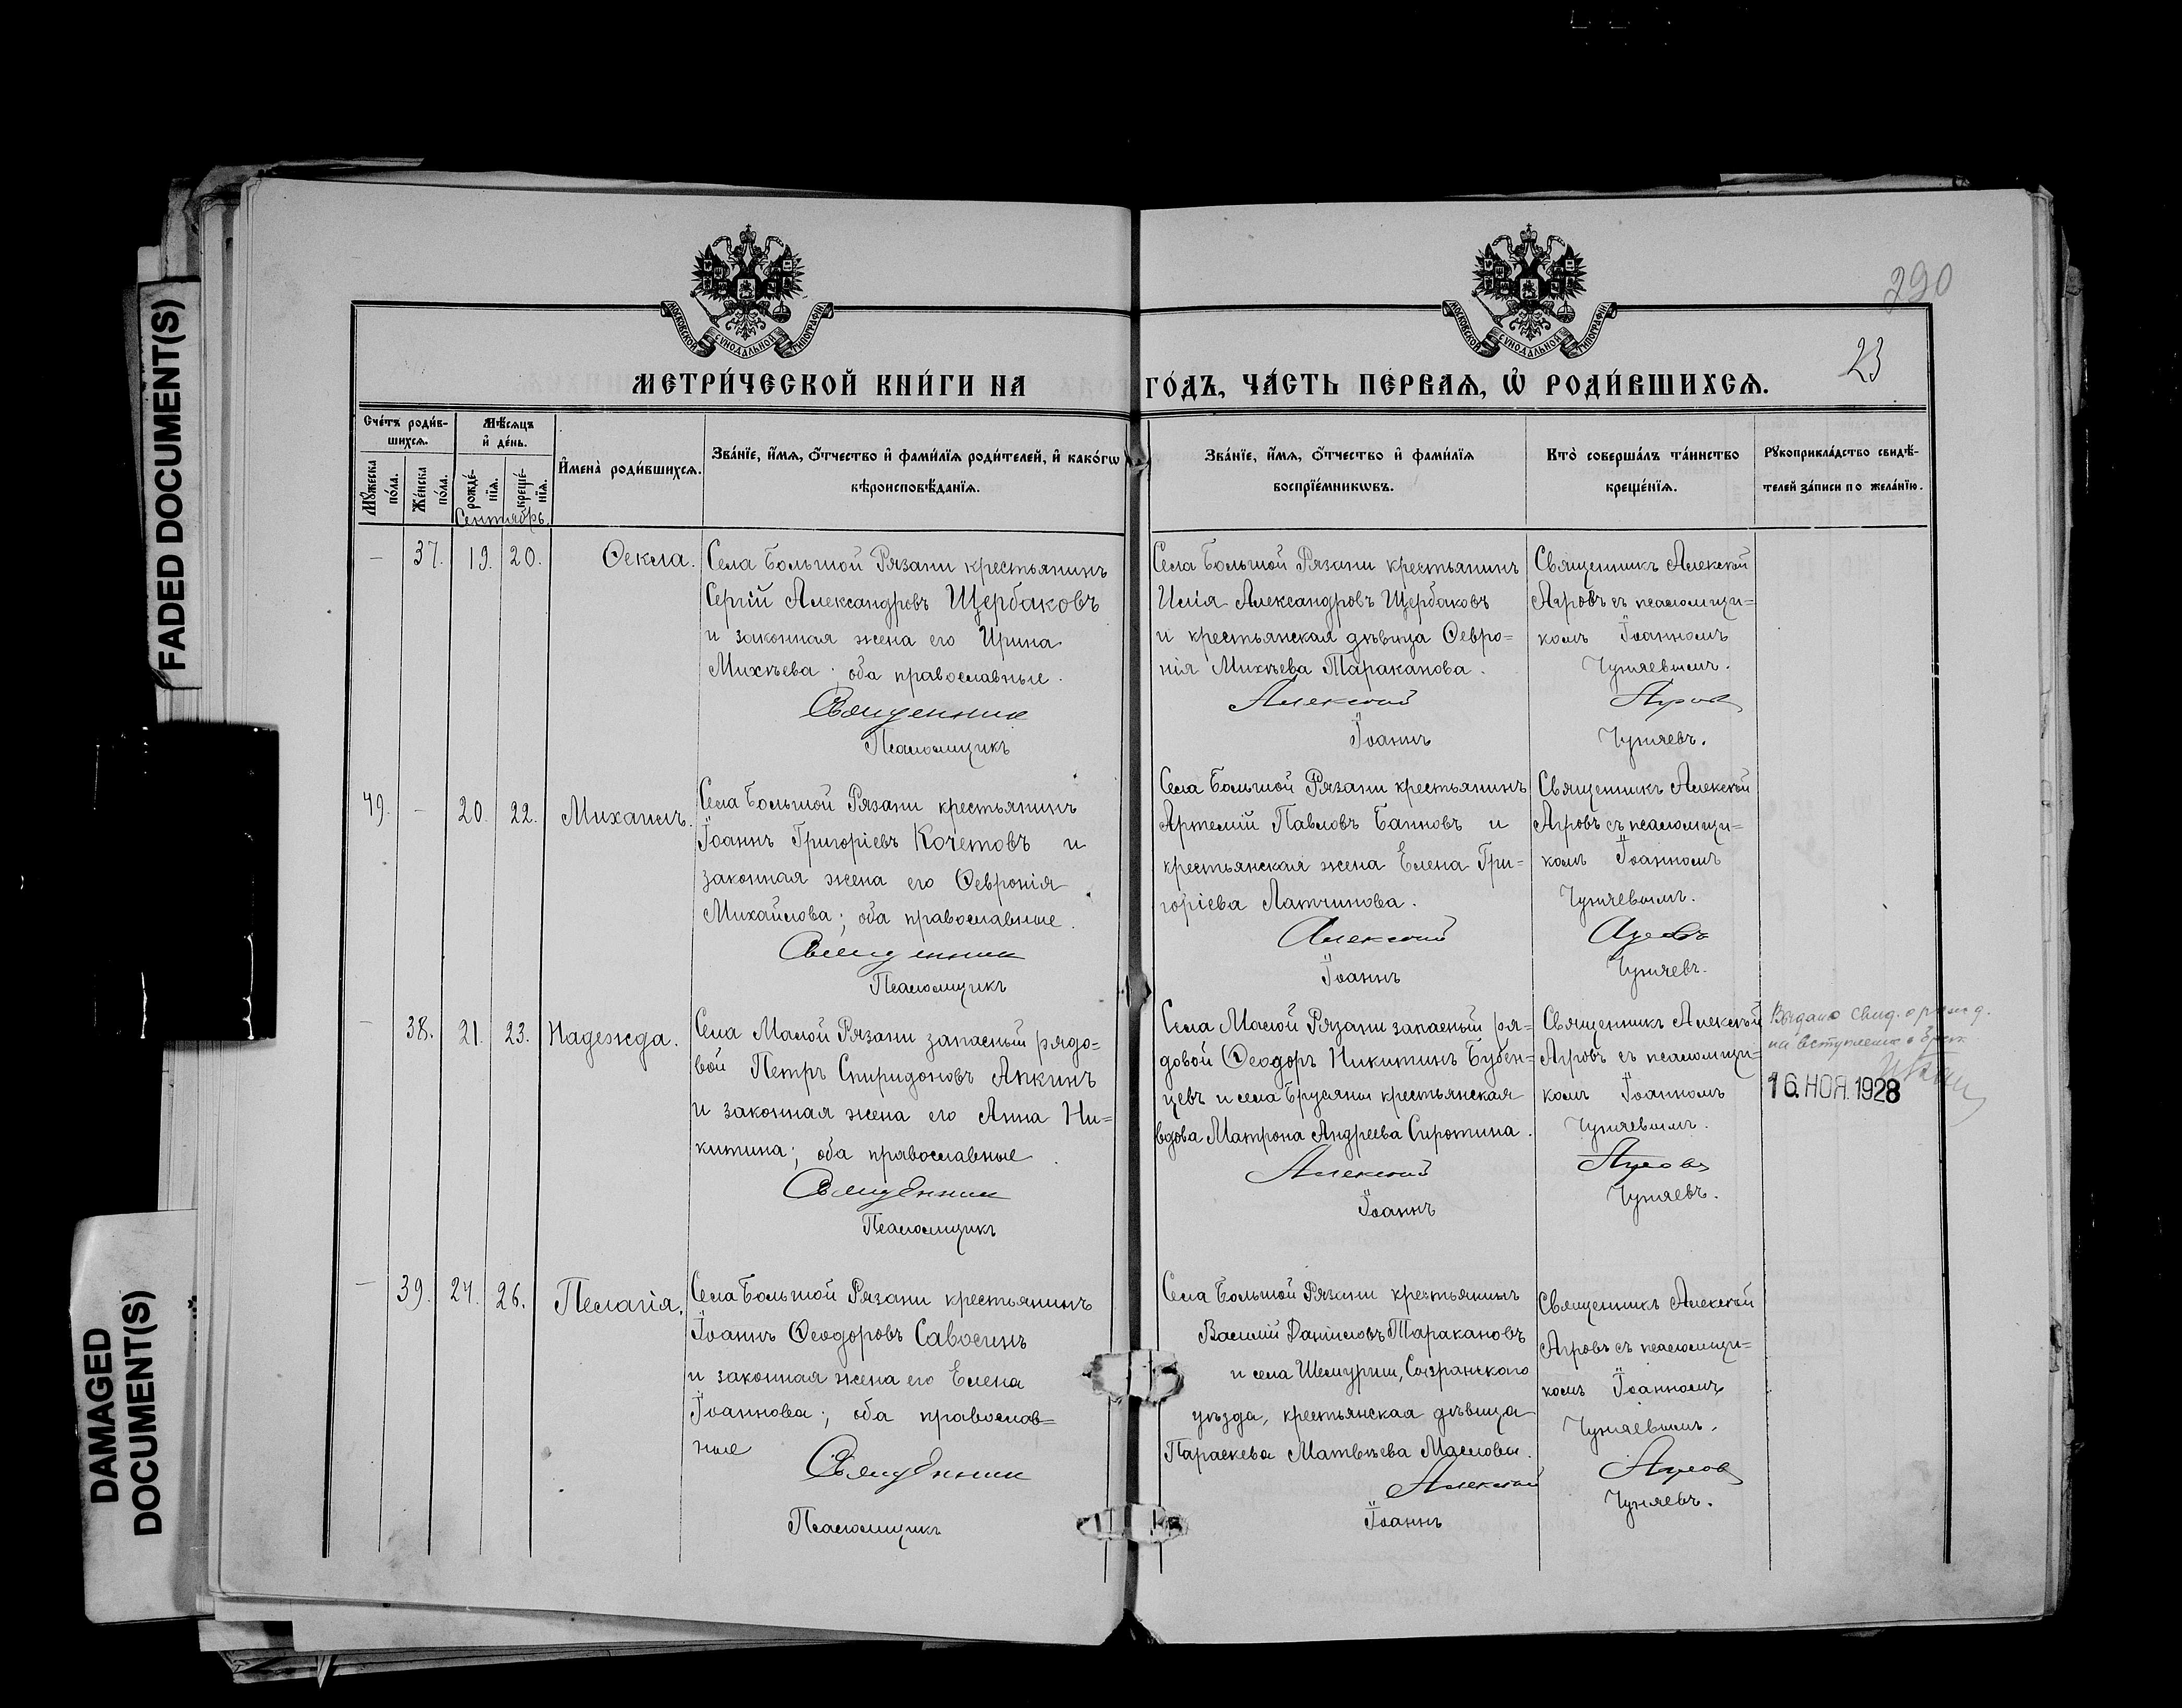 FADED DOCUMENT(S)
DAMAGED
DOCUMENT(S)
290
23
МОСКОВСКОЙ СѴНОДАЛЬНОЙ ТИПОГРАФІИ
МОСКОВСКОЙ СѴНОДАЛЬНОЙ ТИПОГРАФІИ
МЕТРИ́ЧЕСКОЙ КНИ́ГИ НА ГО́ДЪ, ЧА́СТЬ ПЕ́РВАѦ, Ѡ҆ РОДИ́ВШИХСѦ.
Сче́тъ роди́в-
шихсѧ.
Мѣ́сяцъ
и҆ де́нь.
Мꙋ́жеска
по́ла.
Же́нска
по́ла.
рожде́-
нїѧ.
креще́-
нїѧ.
Сентябрь.
И҆мена̀ роди́вшихсѧ.
Зва́нїе, и҆́мѧ, ѻ҆́тчество и҆ фами́лїѧ роди́телей, и҆ како́гѡ
вѣроисповѣ́данїѧ.
Зва́нїе, и҆́мѧ, ѻ҆́тчество и҆ фами́лїѧ
воспрїе́мникѡвъ.
Кто̀ соверша́лъ та́инство
креще́нїѧ.
Рꙋкоприкла́дство свидѣ́-
телей за́писи по жела́нїю.
— 37. 19. 20. Ѳекла.
Села Большой Рязани крестьянинъ
Сергій Александровъ Щербаковъ
и законная жена его Ирина
Михѣева; оба православные.
Священник
Псаломщикъ
Села Большой Рязани крестьянинъ
Илія Александровъ Щербаковъ
и крестьянская дѣвица Ѳевро=
нія Михѣева Тараканова.
Алексий
Іоаннъ
Священникъ Алексѣй
Агровъ съ псаломщи=
комъ Іоанномъ
Чуняевымъ.
Агров
Чуняевъ.
49. — 20. 22. Михаилъ.
Села Большой Рязани крестьянинъ
Іоаннъ Григоріевъ Кочетовъ и
законная жена его Ѳевронія
Михайлова; оба православные.
Священник
Псаломщикъ
Села Большой Рязани крестьянинъ
Артемій Павловъ Баннов и
крестьянская жена Елена Гри=
горіева Латчинова.
Алексий
Іоаннъ
Священникъ Алексѣй
Агровъ съ псаломщи=
комъ Іоанномъ
Чуняевымъ.
Агровъ
Чуняевъ.
— 38. 21. 23. Надежда.
Села Малой Рязани запасный рядо=
вой Петръ Спиридоновъ Апкинъ
и законная жена его Анна Ни=
китина; оба православные.
Священник
Псаломщикъ
Села Малой Рязани запасный ря=
довой Ѳеодоръ Никитинъ Бубен=
цевъ и села Брусяны крестьянская
вдова Матрона Андреева Сиротина.
Алексий
Іоаннъ
Священникъ Алексѣй
Агровъ съ псаломщи=
комъ Іоанномъ
Чуняевымъ.
Агровъ
Чуняевъ.
Выдано свид. о рожд.
на вступление в брак
16. НОЯ. 1928
— 39. 24. 26. Пелагія.
Села Большой Рязани крестьянинъ
Іоаннъ Ѳеодоровъ Савосинъ
и законная жена его Елена
Іоаннова; оба православ=
ные
Священник
Псаломщикъ
Села Большой Рязани крестьянинъ
Василій Даніиловъ Таракановъ
и села Шемурши, Сызранскаго
уѣзда, крестьянская дѣвица
Параскева Матвѣева Маслова.
Алексий
Іоаннъ
Священникъ Алексѣй
Агровъ съ псаломщи=
комъ Іоанномъ
Чуняевымъ.
Агров
Чуняевъ.